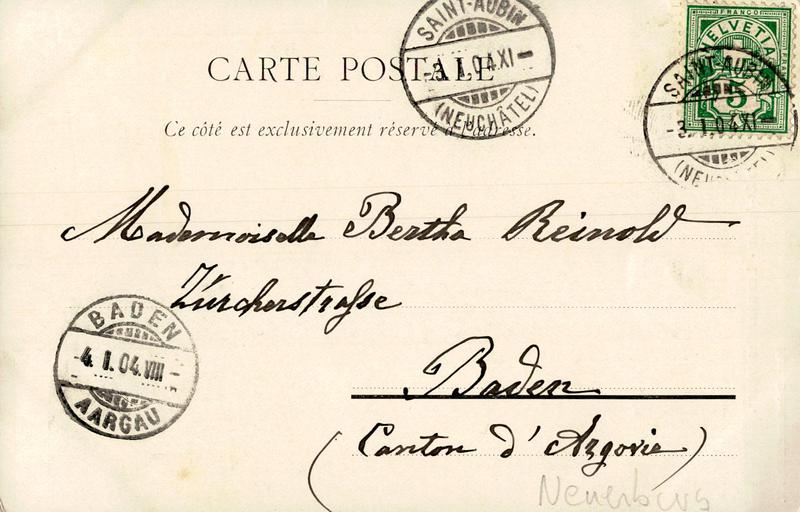 SAINT-AUBIN
-3. I. 04 XI-
(NEUCHÂTEL)
FRANCO
HELVETIA
5
SAINT-AUBIN
-3. I. 04 XI-
CARTE POSTALE
Ce côté est exclusivement réservé à l'adresse.
Mademoiselle Bertha Reinold
Zürcherstrasse
BADEN
4. I. 04. VIII-
AARGAU
Baden
(Canton d'Argovie)